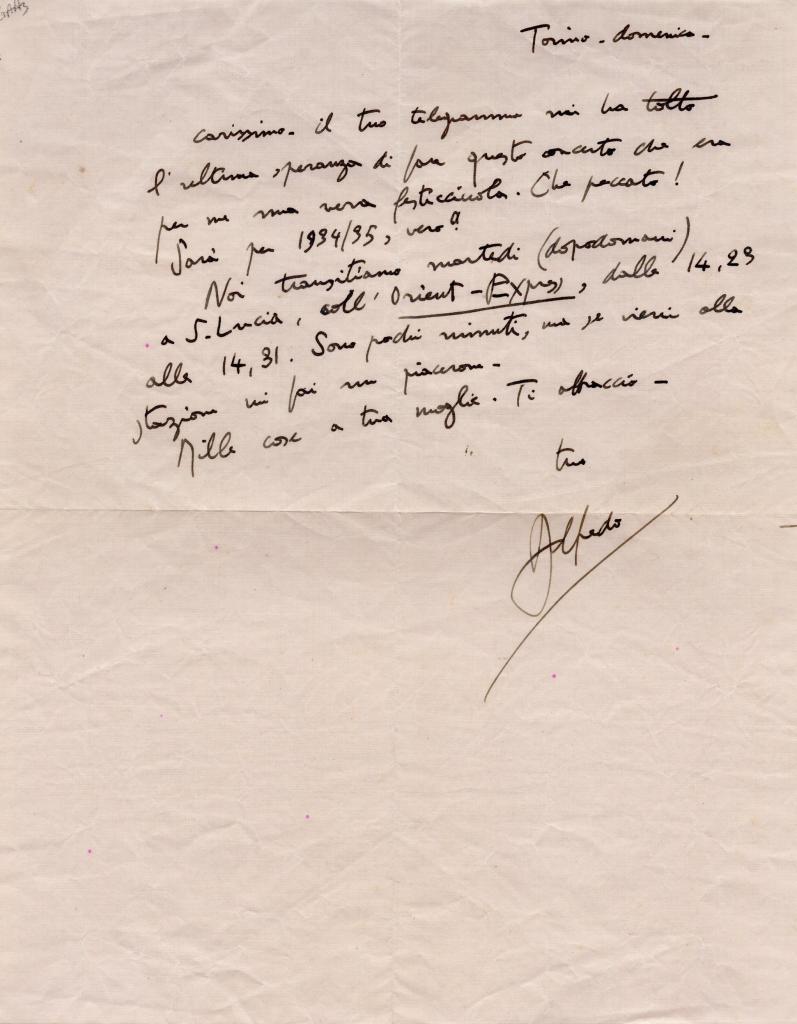 Torino - domenica -
carissimo - il tuo telegramma mi ha tolto
l'ultima speranza di fare questo concerto che era
per me una vera festicciola. Che peccato!
Sarà per 1934/35, vero?
Noi transitiamo martedì (dopodomani)
a S. Lucia, coll'Orient-Express, dalle 14,23
alle 14,31. Sono pochi minuti, ma se vieni alla
stazione mi fai un piacerone -
Mille cose a tua moglie. Ti abbraccio -
tuo
Alfredo